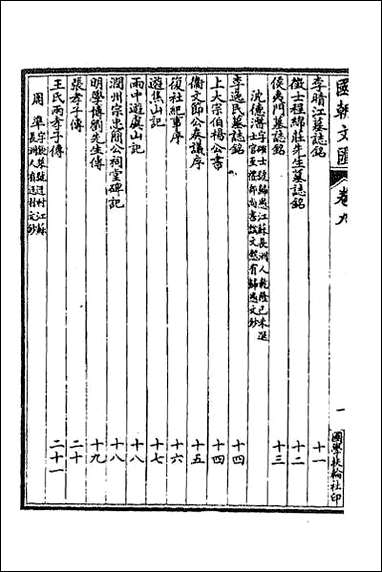 國朝文匯 卷九 一 國學扶輪社印
李晴江墓誌銘 十一
徵士程綿莊先生墓誌銘 十二
侯夷門墓誌銘 十三
沈德潛 字確士號歸愚江蘇長洲人乾隆己未進士官至禮部尚書諡文慤有歸愚文鈔
李逸民墓誌銘 十四
上大宗伯楊公書 十四
衞文節公奏議序 十五
復社紀事序 十六
遊焦山記 十七
雨中遊虞山記 十八
潤州宗忠簡公祠堂碑記 十八
明學博劉先生傳 十九
張孝子傳 二十
王氏兩孝子傳 二十一
周準 字欽萊號迂村江蘇長洲人有迂村文鈔